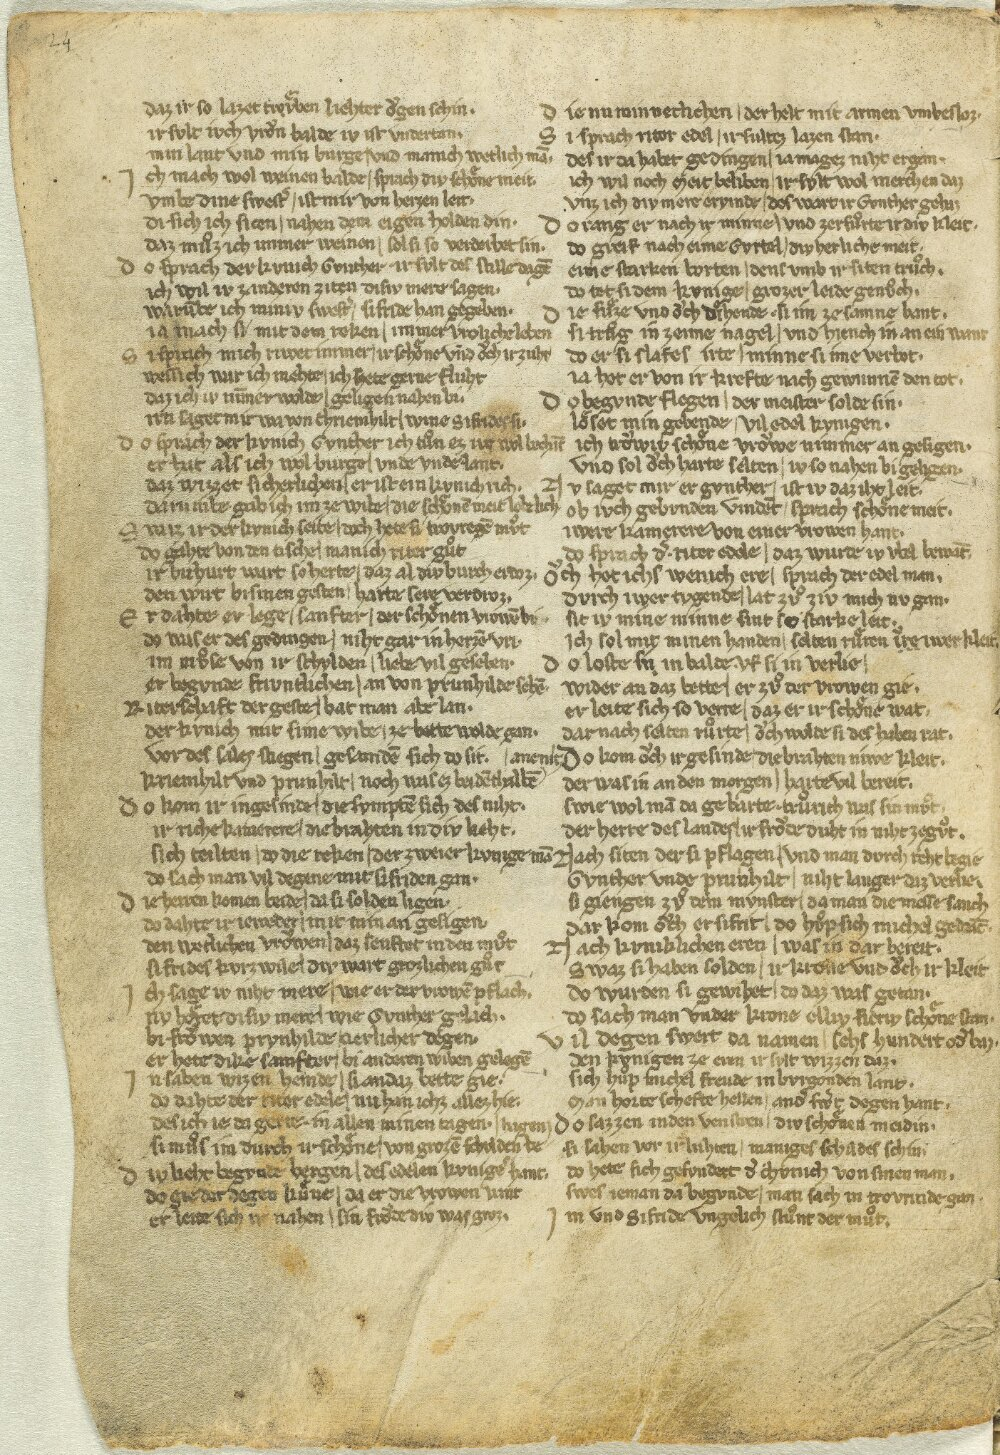 24
daz ir so lazet trvͤben liehter oͮgen schin.
ir svlt ivch vroͮn balde iv ist vndertan.
min lant vnd min burge / vnd manich wetlich mā.
I ch mach wol weinen balde / sprach div schoͤne meit.
vmbe dine swestˢ / ist mir von herzen leit.
di sich ich sitzen / nahen dem eigen holden din.
daz mvͦz ich immer weinen / sol si so verderbet sin.
D o sprach der kvnich Gvnther ir svlt des stille dagē
ich wil iv zanderen ziten disiv mere sagen.
warvmbe ich miniv swestˢ / sifride han gegeben.
ia mach si mit dem reken / immer vroliche leben
S i sprach mich riwet immer / ir schoͤne vnd oͮch ir zuht
wessich war ich mohte / ich hete gerne fluht
daz ich iv nimmer wolde / geligen nahen bi.
irn saget mir wa von chriemhilt / wine Sifrides si.
D o sprach der kvnich Gvnther ich tvͦn ez iv wol bechāt
er hat als ich wol burge / vnde vnde lant.
daz wizzet sicherlichen / er ist ein kvnich rich.
darumbe gab ich im ze wibe / die schonē meit lobelich
S waz ir der kvnich seite / doch hete si trvͦregē mvͦt
do gahte von den tische / manich riter gvͦt
ir buhurt wart so herte / daz al div burch erdoz.
den wirt bi sinen gesten / harte sere verdroz.
E r dahte er lege / sanfter / der schoͤnen vrowē bi
do was er des gedingen / niht gar in herzē vri.
im mvͦse von ir schvlden / liebe vil gesehen.
er begvnde frivntlichen / an von prunhilde sehē.
R iterschaft der geste / bat man abe lan.
der kvnich mit sime wibe / ze bette wolde gan.
vor des sales stiegen / gesamden sich do sit. / ane nit
kriemhilt vnd prunhilt / noch was ez beidenthalbē
D o kom ir ingesinde / die svmpten sich des niht.
ir riche kamerere / die brahten in div lieht.
sich teilten / do die reken / der zweier kvnige mā
do sach man vil degene mit sifriden gan.
D ie herren komen beide / da si solden ligen
do dahte ir ieweder / mit min an gesigen
den wetlichen vroͮwen / daz senftet in den mvͦt
sifrides kvrzwile / div wart grozlichen gvͦt
I ch sage iv niht mere / wie er der vrowē pflach.
nv hoͤret disiv mere / wie Gvnther gelach.
bi froͮwen prvnhilde zierlicher degen.
er hete dike samfter / bi anderen wiben gelegē
I n sahen wizen hemde / si an daz bette gie.
do dahte der riter edele / nu han ichz allez hie.
des ich ie da gerte in allen minen tagen. / hagen
si mvͦs im durch ir schoͤne / von grozē schulden be
D iv lieht begvnde bergen / des edelen kvnigeˢ hant.
do gie der degen kvͤne / da er die vrowen vant
er leite sich ir nahen / sin froͮde div was groz.
D ie nu minneclichen / der helt mit armen vmbesloz.
S i sprach riter edel / ir sultez lazen stan.
des ir da habet gedingen / ia magez niht ergan.
ich wil noch meit beliben / ir svlt wol merchen daz
vnz ich div mere ervinde / des wart ir Gvnther gehaz
D o rang er nach ir minne / vnd zerfvͦrte ir div kleit.
do greif nach eime gvrtel / div herliche meit.
eime starken borten / dens vmb ir siten trvͦch.
do tet si dem kvnige / grozer leide genvͦch.
D ie fvͤze vnd oͮch die hende / si im ze samne bant.
si trvͦg in zeime nagel / vnd hiench in an ein want
do er si slafes irte / minne si ime verbot.
ia het er von ir krefte nach gewunnē den tot.
D o begvnde flegen / der meister solde sin.
loͤset min gebende / vil edel kvnigen.
ich trowiv schoͤne vroͮwe nimmer an gesigen.
vnd sol oͮch harte selten / iv so nahen bi geligen.
N v saget mir er gvnther / ist iv daz iht leit.
ob ivch gebvnden vindēt / sprach schoͤne meit.
iwere kamerere von einer vrowen hant.
do sprach dˢ riter edele / daz wurde iv vbel bewāt
oͮch het ichs wenich ere / sprach der edel man.
durch iwer tvgende / lat zvͦ ziv mich nv gan.
sit iv mine minne sint so starke leit.
ich sol mit minen handen / selten rvͤren iwer kleit
D o loste si in balde vf si in verlie /
wider an daz bette / er zvͦ der vrowen gie.
er leite sich so verre / daz er ir schoͤne wat.
dar nach selten rvͦrte / oͮch wolte si des haben rat.
D o kom oͮch ir gesinde die brahten niwe kleit.
der was in an den morgen / harte vil bereit.
swie wol mā da gebarte trvͦrich was sin mvͦt.
der herre des landes / ir froͮde duht in niht ze gvͦt.
N ach siten der si pflagen / vnd man durch reht begie
Gvnther vnde prunhilt / niht langer daz verlie.
si giengen zvͦ dem mvnster / da man die messe sanch
dar kom oͮch er sifrit / do hvͦp sich michel gedranc.
N ach kvniklichen eren / was in dar bereit.
swaz si haben solden / ir krone vnd oͮch ir kleit
do wurden si gewihet / do daz was getan.
do sach man vnder krone elliv fieriv schoͤne stan.
V il degen swert da namen / sehs hundert odˢ baz.
den kvnigen ze eren ir svlt wizzen daz.
sich hvͦp michel freude in bvrgonden lant.
man horte schefte hellen / an dˢ swert degen hant.
D o sazzen inden venstren / div schoͤnen meidin.
si sahen vor ir luhten / maniges schildes schin.
do hete sich gesundert dˢ chvnich von sinen man.
swes ieman da begvnde / man sach in trvrende gan.
I m vnd Sifride vngelich stvͦnt der mvͦt.